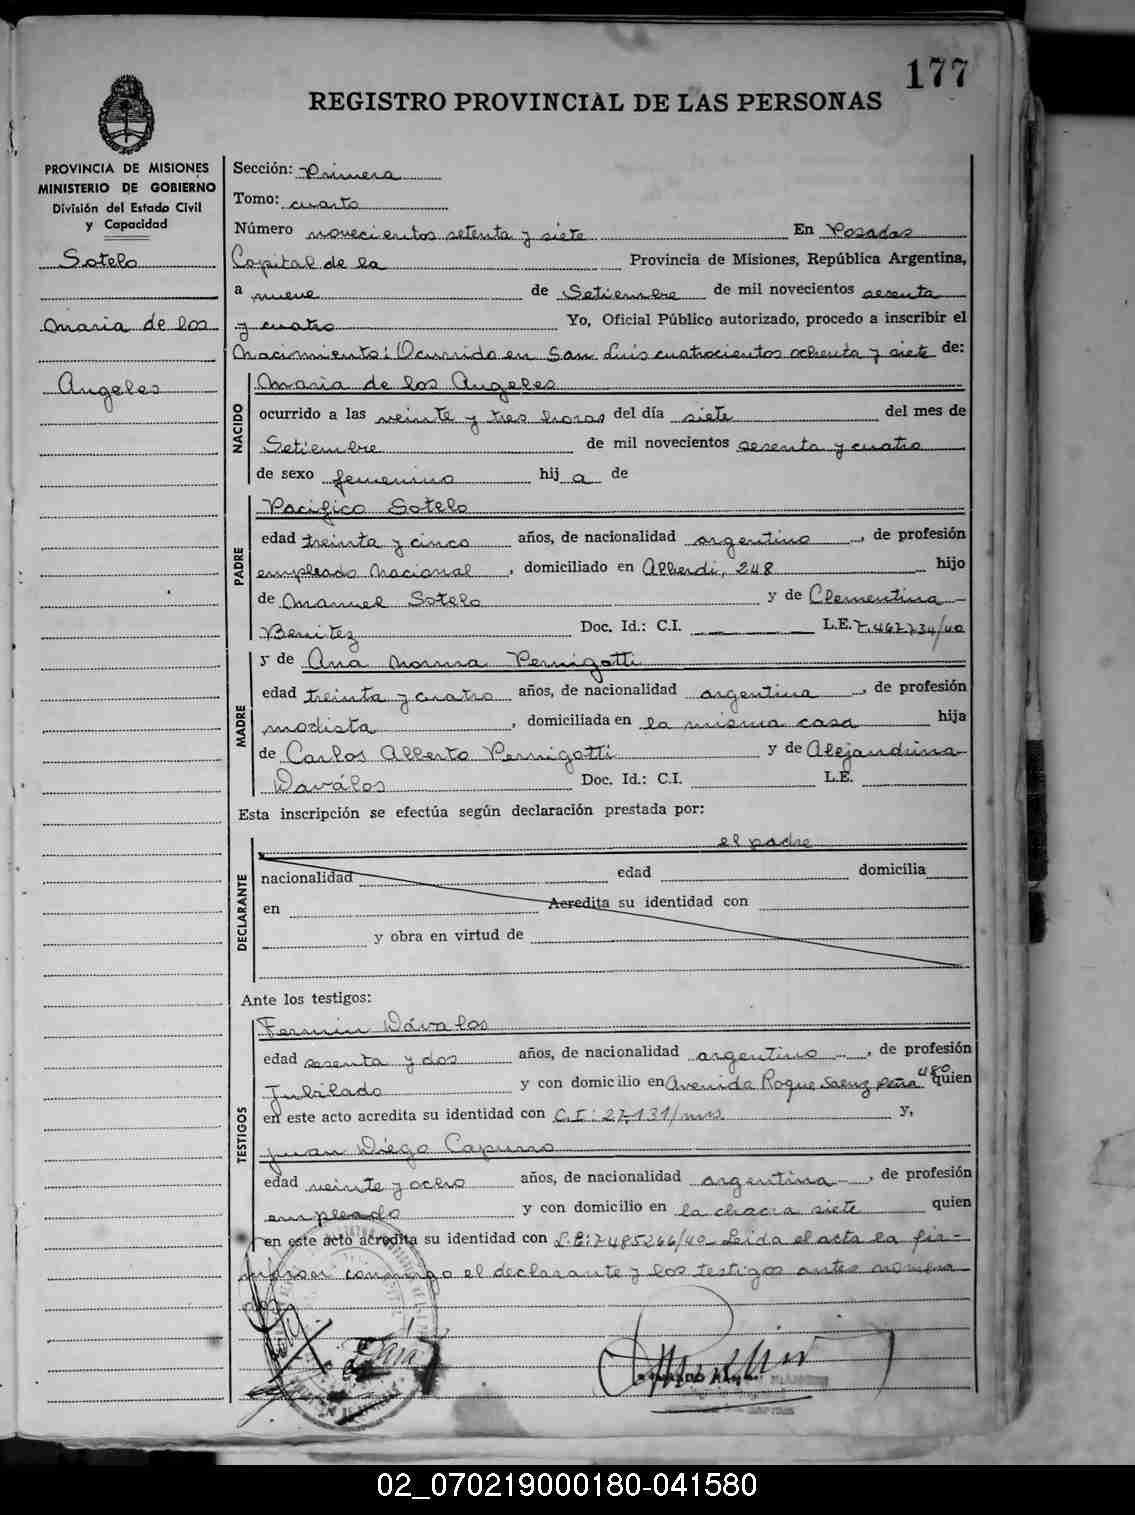 177
REGISTRO PROVINCIAL DE LAS PERSONAS
PROVINCIA DE MISIONES
MINISTERIO DE GOBIERNO
División del Estado Civil
y Capacidad
Sotelo
Maria de los
Angeles
Sección: Primera
Tomo: cuarto
Número novecientos setenta y siete En Posadas
Capital de la Provincia de Misiones, República Argentina,
a nueve de Setiembre de mil novecientos sesenta
y cuatro Yo, Oficial Público autorizado, procedo a inscribir el
Nacimiento: Ocurrido en San Luis cuatrocientos ochenta y siete de:
NACIDO
Maria de los Angeles
ocurrido a las veinte y tres horas del día siete del mes de
Setiembre de mil novecientos sesenta y cuatro
de sexo femenino hij a de
PADRE
Pacifico Sotelo
edad treinta y cinco años, de nacionalidad argentino, de profesión
empleado Nacional, domiciliado en Alberdi, 248 hijo
de Manuel Sotelo y de Clementina
Benitez Doc. Id.: C.I. L.E. 7.467.734/40
MADRE
y de Ana Norma Pernigotti
edad treinta y cuatro años, de nacionalidad argentina, de profesión
modista, domiciliada en la misma casa hija
de Carlos Alberto Pernigotti y de Alejandrina
Daválos Doc. Id.: C.I. L.E.
Esta inscripción se efectúa según declaración prestada por:
DECLARANTE
el padre
nacionalidad edad domicilia
en Acredita su identidad con
y obra en virtud de
Ante los testigos:
TESTIGOS
Fermin Dávalos
edad sesenta y dos años, de nacionalidad argentino, de profesión
Jubilado y con domicilio en Avenida Roque Saenz Peña 480 quien
en este acto acredita su identidad con C.I: 27.131/mns y,
Juan Diego Capurro
edad veinte y ocho años, de nacionalidad argentina, de profesión
empleado y con domicilio en la chacra siete quien
en este acto acredita su identidad con L.E: 7485266/40 Leida el acta la fir-
maron conmigo el declarante y los testigos antes nombra
dos
02_070219000180-041580